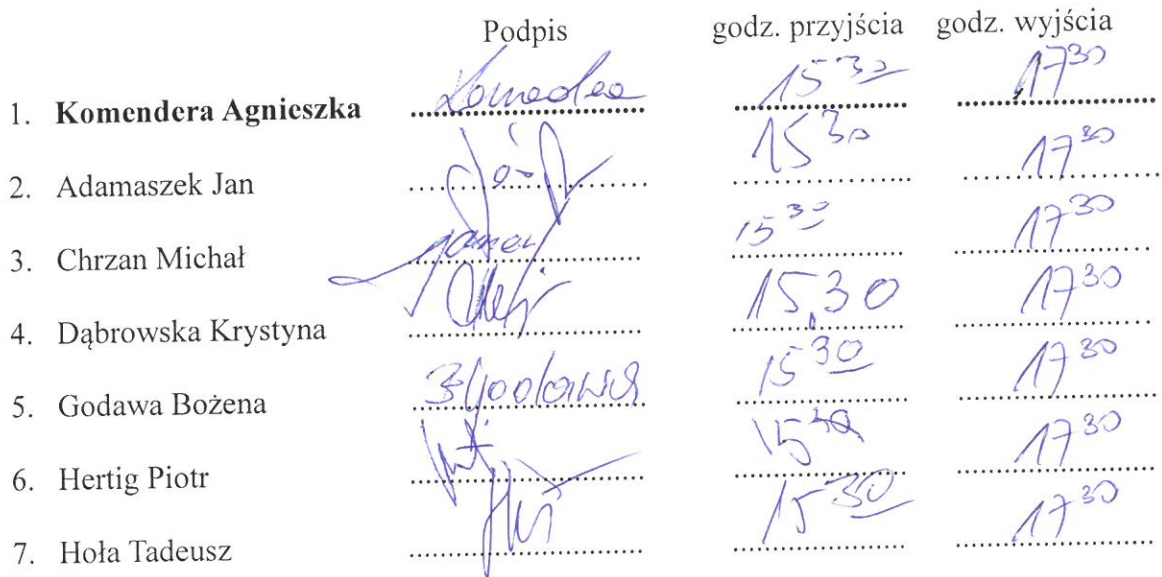 Podpis godz. przyjścia godz. wyjścia
1. Komendera Agnieszka 15 30 17 30
2. Adamaszek Jan 15 30 17 30
3. Chrzan Michał 15 30 17 30
4. Dąbrowska Krystyna 15,30 17 30
5. Godawa Bożena 15 30 17 30
6. Hertig Piotr 15 30 17 30
7. Hoła Tadeusz 15 30 17 30